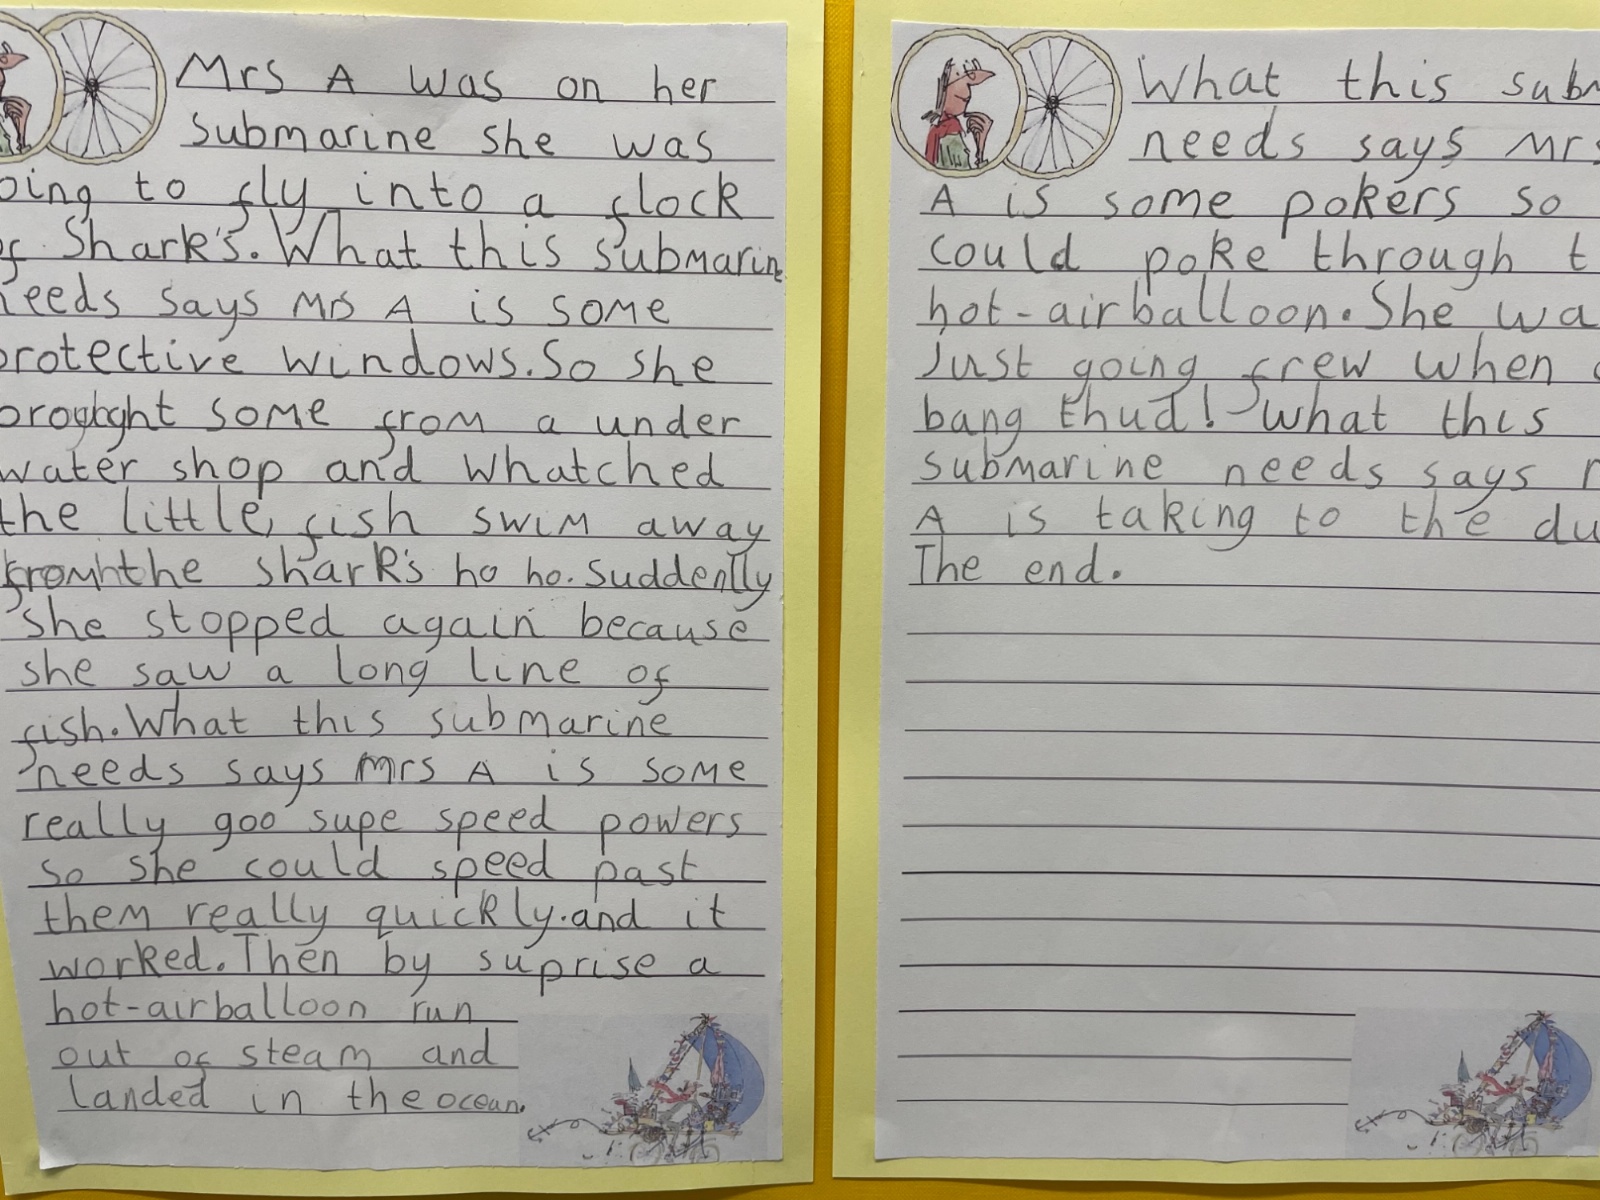 Mrs A was on her
submarine she was
oing to fly into a flock
of Shark's. What this submarin
needs says Mrs A is some
protective windows. So she
some from a under
water shop and whatched
the little, fish swim away
from the shark's ho ho. Suddenlly
she stopped again because
she saw a long line of
fish. What this submarine
needs says Mrs A is some
really goo supe speed powers
so she could speed past
them really quickly. and it
worked. Then by suprise a
hot-airballoon run
out of steam and
landed in the ocean.
What this subm
needs says Mrs
A is some pokers so
could poke through t
hot-airballoon. She wa
Just going frew when
bang thud! what this
submarine needs says
A is taking to the du
The end.